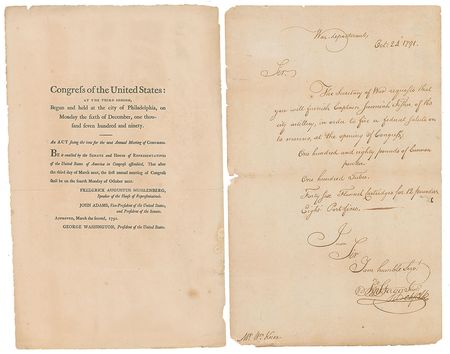 Congreſs of the United States:
AT THE THIRD SESSION,
Begun and held at the city of Philadelphia, on
Monday the ſixth of December, one thou-
ſand ſeven hundred and ninety.
An ACT fixing the time for the next Annual Meeting of CONGRESS.
BE it enacted by the SENATE and HOUSE of REPRESENTATIVES
of the United States of America in Congreſs aſſembled, That after
the third day of March next, the firſt annual meeting of Congreſs
ſhall be on the fourth Monday of October next.
FREDERICK AUGUSTUS MUHLENBERG,
Speaker of the Houſe of Repreſentatives.
JOHN ADAMS, Vice-Preſident of the United States,
and Preſident of the Senate.
APPROVED, March the ſecond, 1791.
GEORGE WASHINGTON, Preſident of the United States.
War department,
Oct: 24 1791.
Sir,
The Secretary of War requests that
you will furnish Captain Jeremiah Fisher of the
city artillery, in order to fire a federal salute on
to morrow, at the opening of Congress,
One hundred and eighty pounds of Cannon
powder
One hundred Tubes.
Forty six Flannel Cartridges for 12 pounders
Eight Port fires.
I am
Sir
I am humble Servt.
Mr. Wm. Knox